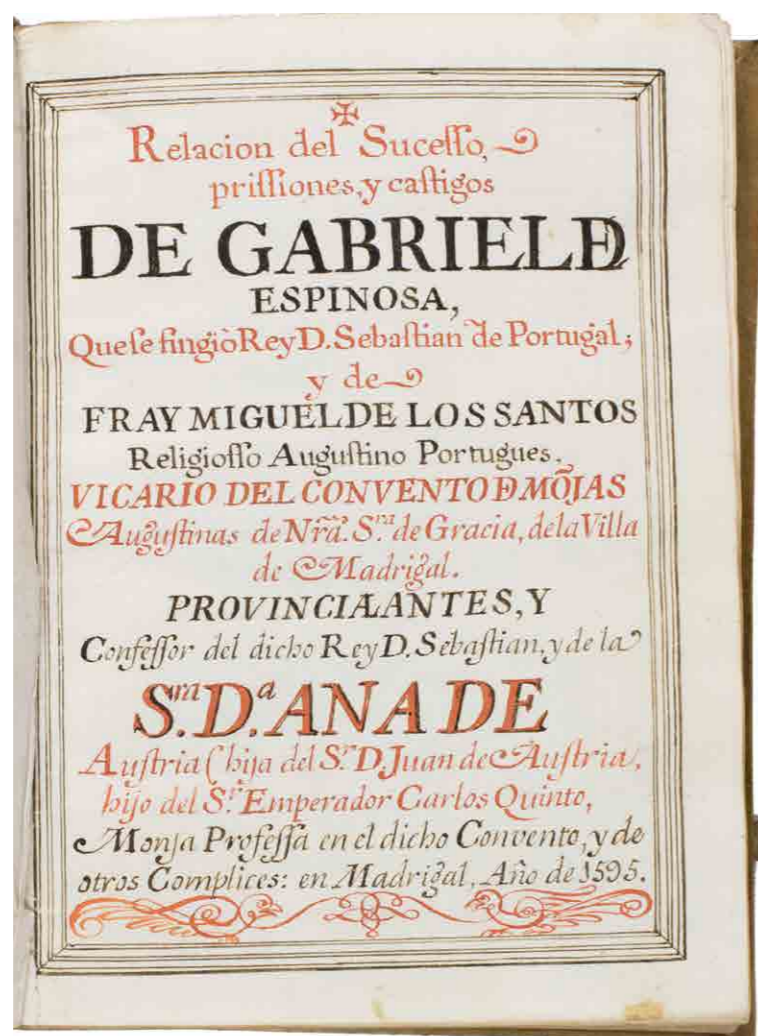 ✠
Relacion del Sucesso,
prissiones, y castigos
DE GABRIEL DE
ESPINOSA,
Que se fingiò Rey D. Sebastian de Portugal;
y de
FRAY MIGUEL DE LOS SANTOS
Religiosso Augustino Portugues,
VICARIO DEL CONVENTO DE MÕJAS
Augustinas de Nr̃a. S.ra de Gracia, de la Villa
de Madrigal.
PROVINCIAL ANTES, Y
Confessor del dicho Rey D. Sebastian, y de la
S.ra D.a ANA DE
Austria (hija del S.r D. Juan de Austria,
hijo del S.r Emperador Carlos Quinto,
Monja Professa en el dicho Convento, y de
otros Complices: en Madrigal, Año de 1595.